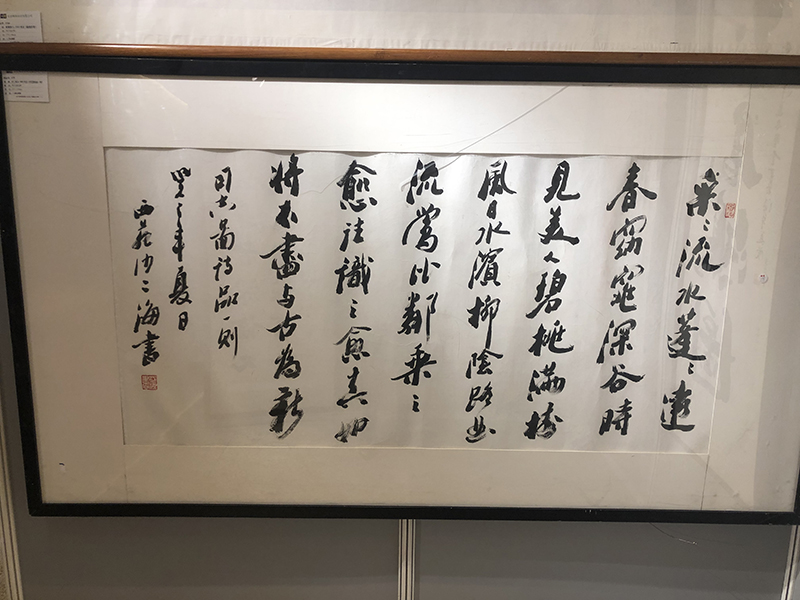 采〻流水蓬〻遠
春窈窕深谷時
見美人碧桃滿樹
風日水濱柳陰路曲
流鶯比鄰乘之
愈往識之愈真如
将不盡与古為新
司空圖詩品一則
癸年夏日
西海書